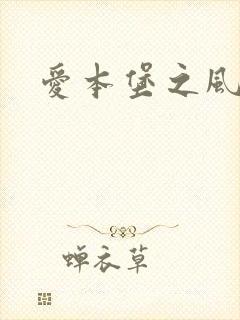 愛本堡之風
蝉衣草